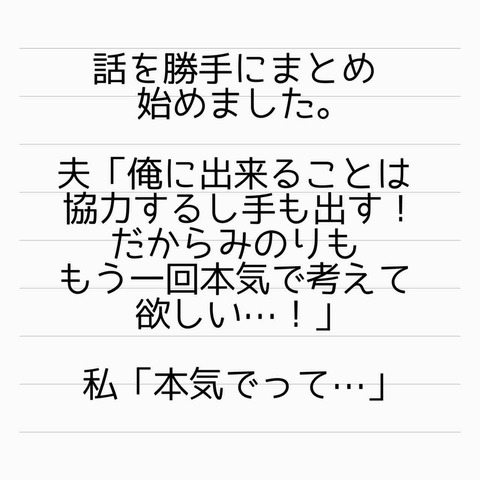 話を勝手にまとめ
始めました。
夫「俺に出来ることは
協力するし手も出す！
だからみのりも
もう一回本気で考えて
欲しい…！」
私「本気でって…」